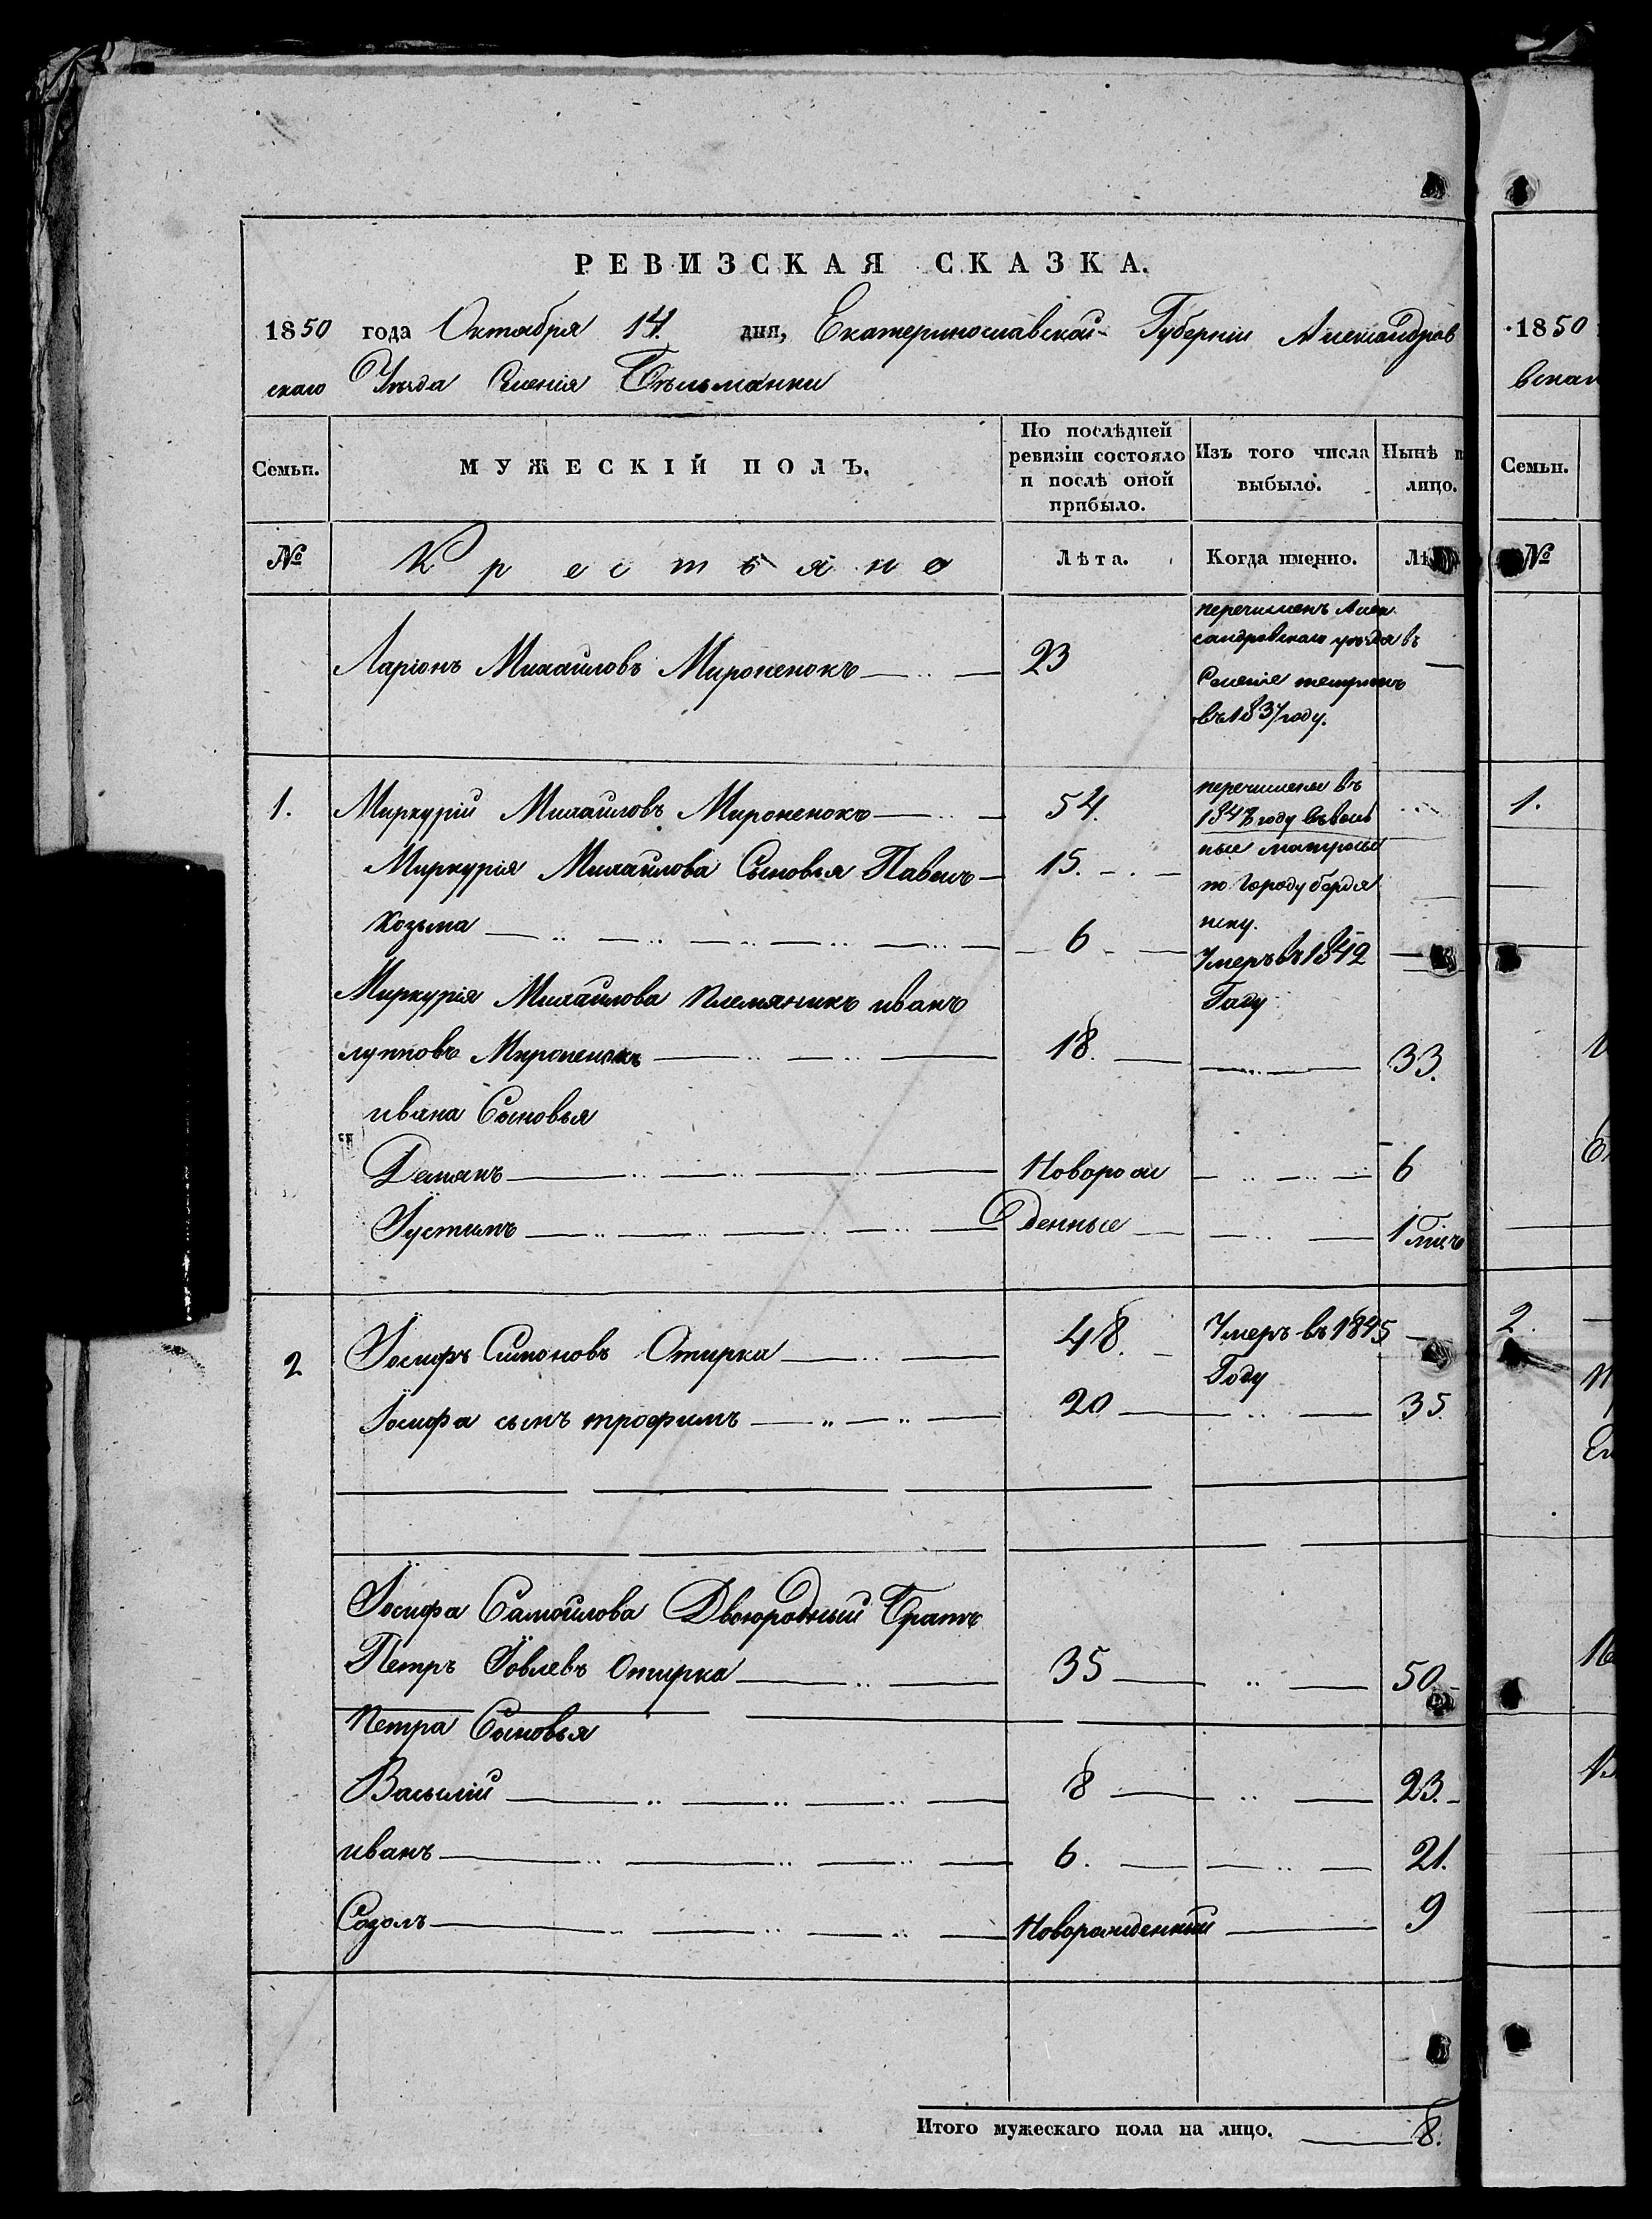 РЕВИЗСКАЯ СКАЗКА.
1850 года Октября 14. дня, Екатеринославской Губерніи Александров
скаго Уѣзда Селенія Бѣльманки
Семьи.
МУЖЕСКІЙ ПОЛЪ,
По послѣдней
ревизіи состояло
и послѣ оной
прибыло.
Изъ того числа
выбыло.
Нынѣ н
лицо.
№
Крестьяне
Лѣта.
Когда именно.
Лѣ
Ларіонъ Михайловъ Мироненокъ
23
перечисленъ Алек
сандровскаго уѣзда въ
Селеніе
въ 1837 году.
1.
Миркурій Михайловъ Мироненокъ
54.
перечислены въ
году въ воль
ные матросы
по городу бердя
нску.
Миркурія Михайлова Сыновья Павелъ
15.
Козьма
6
Умеръ въ 1842
Году
Миркурія Михайлова племянникъ иванъ
лупповъ Мироненокъ
18.
33.
ивана Сыновья
Демянъ
Новорож
6
Іустинъ
денные
1
2
Іосифъ Симоновъ Отирка
48.
Умеръ въ 1845
Году
Іосифа сынъ трофимъ
20
35
Іосифа Самойлова Двоюродный Братъ
Петръ Іовлевъ Отирка
35
50
Петра Сыновья
Василій
8
23.
иванъ
6.
21.
Созонъ
Новорожденный
9
Итого мужескаго пола на лицо.
8.
1850
вскаг
Семьи.
№
1.
2.